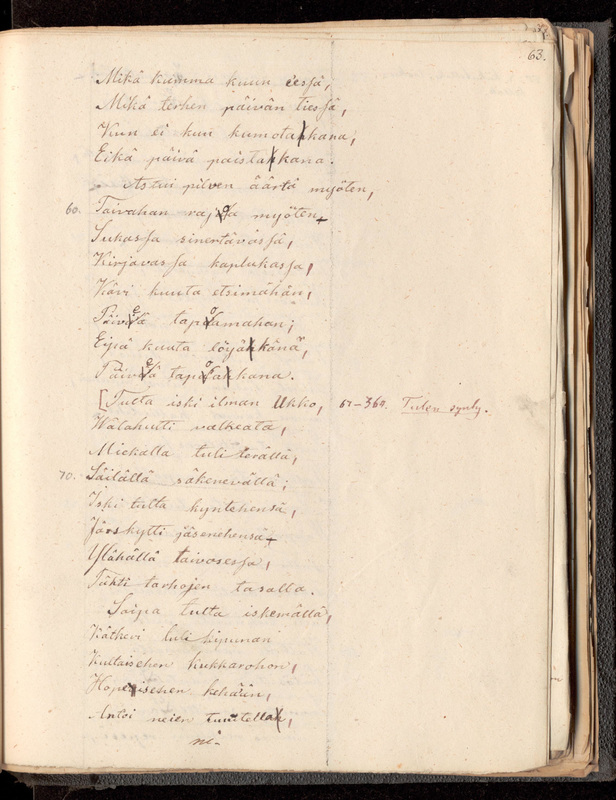 63.
Mikä kumma kuun eessä,
Mikä terhen päivän tiessä,
Kun ei kuu kumotahkana,
Eikä päivä paistahkana.
Astui pilven äärtä myöten,
60. Taivahan rajoa myöten
Sukassa sinertävässä,
Kirjavassa kaplukassa,
Kävi kuuta etsimähän,
Päiveä tapoamahan;
Eipä kuuta löyjäkänä,
Päiveä tapoakana.
[Tulta iski ilman Ukko, 67-364. Tulen synty.
Wälähutti valkeata,
Miekalla tuliterällä,
70. Säilällä säkenevällä;
Iski tulta kyntehensä,
Järskytti jäsenehensä
Ylähällä taivosessa,
Tähti tarhojen tasalla.
Saipa tulta iskemällä,
Kätkevi tuli kipunan
Kultaisehen kukkarohon,
Hopeisehen kehään,
Antoi neien tuuitella,
nei-